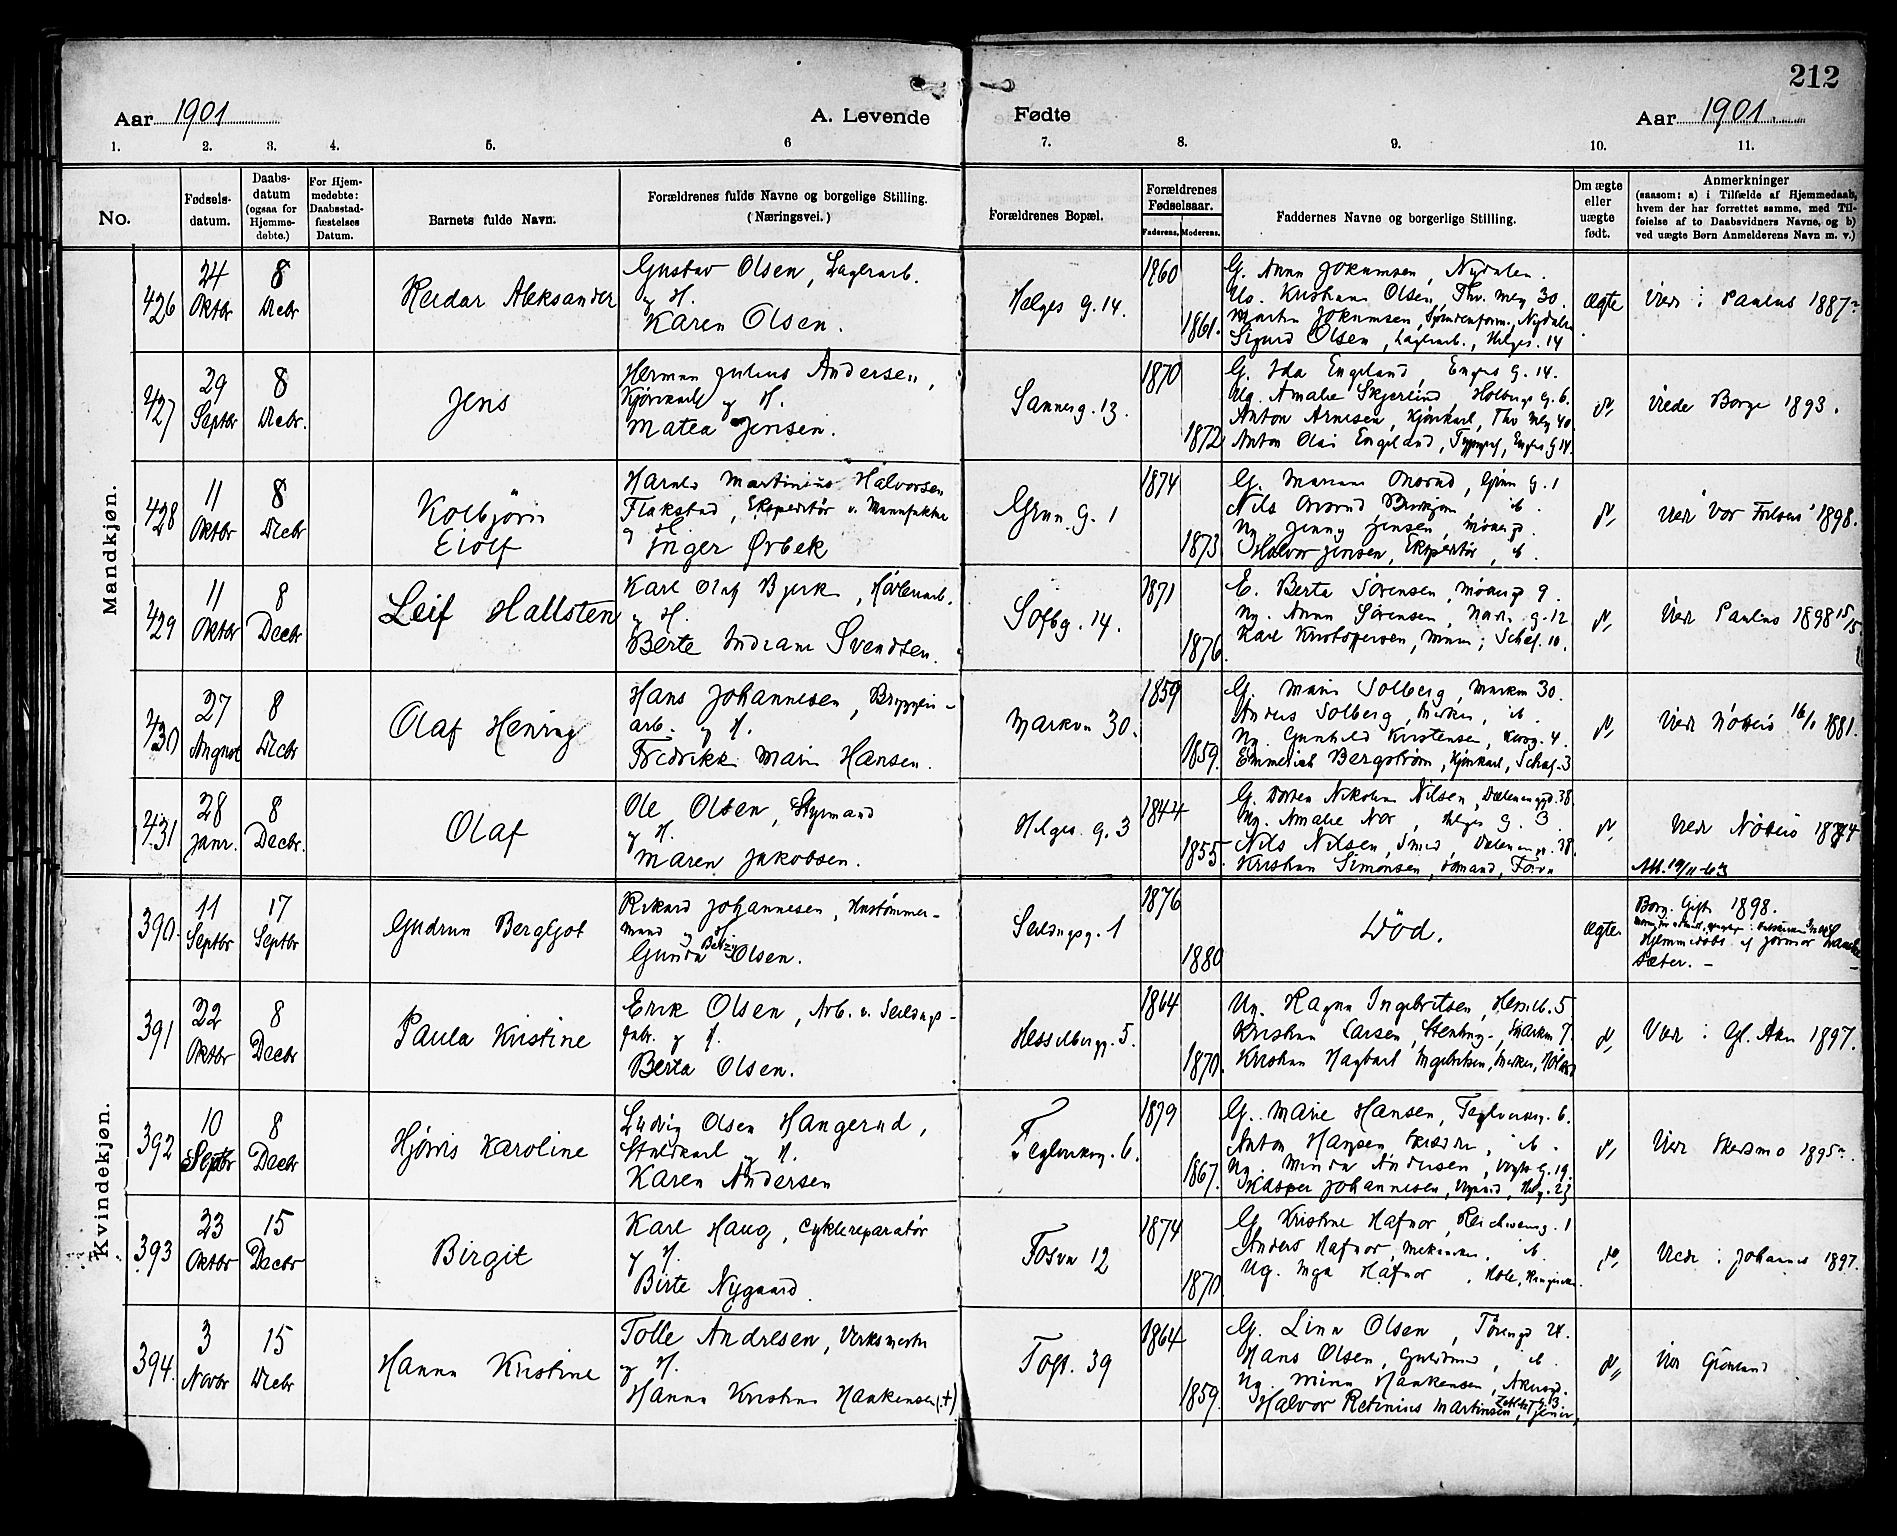 212
Aar 1901
A. Levende
Fødte
Aar 1901
1. 2. 3. 4. 5. 6 7. 8. 9. 10. 11.
No.
Fødsels-
datum.
Daabs-
datum
(ogsaa for
Hjemme-
døbte.)
For Hjem-
medøbte:
Daabsstad-
fæstelses
Datum.
Barnets fulde Navn.
Forældrenes fulde Navne og borgelige Stilling.
(Næringsvei.)
Forældrenes Bopæl.
Forældrenes
Fødselsaar.
Faderens. Moderens.
Faddernes Navne og borgerlige Stilling.
Om ægte
eller
uægte
født.
Anmerkninger
(saasom: a) i Tilfælde af Hjemmedaab,
hvem der har forrettet samme, med Til-
føielse af to Daabsvidners Navne, og b)
ved uægte Børn Anmelderens Navn m. v.)
Mandkjøn.
426
24
Oktbr
8
Decbr
Reidar Aleksander
Gustav Olsen, Lagerarb.
og H.
Karen Olsen.
Helges g. 14.
1860
1861.
G. Anna Jokumsen, Nydalen.
Kristiane Olsen, Thv. Mey 30.
Martin Jokumsen, Nydalen
Sigurd Olsen, Lagerarb., Helges. 14
ægte
Viede i Paulus 1887
427
29
Septbr
8
Decbr.
Jens
Herman Julius Andersen,
Kjørekarl og H.
Matea Jensen.
Sannerg. 13.
1870
1872
G. Ida Engeland, Enges g. 14.
Ug. Amalie Skjerlind, Holbergs g. 6.
Anton Arnesen, Kjørekarl, Thv Mey 40
Anton Olai Engeland, Typogr., Enges g 14.
Viede Borge 1893.
428
11
Oktbr
8
Decbr
Kolbjørn
Eiolf
Harald Martinius Halvorsen
Flakstad, Ekspeditør v. Manufaktur
og H
Inger Ørbek
Grün. g. 1
1874
1873
G. Mariane Morud, Grün g. 1
Nils Morud, ib.
Ug Jenny Jensen,
Halvor Jensen, Ekspeditør, ib.
Vied Vor Frelsers 1898.
429
11
Oktbr
8
Decbr
Leif Hallsten
Karl Olaf Bjerke, Høvleriarb.
og H.
Berte Indiane Svendsen.
Sofbg. 14.
1871
1876.
E. Berta Sørensen, 9.
Ug. Anna Sørensen, g. 12
Karl Kristoffersen, Schaf. 10.
Vied Paulus 1898 15/5
430
27
August
8
Decbr
Olaf Hening
Hans Johannesen, Bryggeri-
arb. og H.
Fredrikke Marie Hansen.
Markvn 30.
1859
1859.
G. Marie Solberg, Markvn 30.
Anders Solberg, ib.
Ug. Gunhild Kirstensen, 4.
Emmerich Bergstrøm, Kjørekarl, Schaf. 3
Vied Nøtterø 16/1 1881.
431
28
Janr.
8
Decbr.
Olaf
Ole Olsen, Styrmand
og H.
Maren Jakobsen.
Helges. g. 3
1844
1855.
G. Nikoline Nilsen, Dælenenggd. 38.
Ug. Amalie Nor, Helges g. 3
Nils Nilsen, Smed, Dælenengg. 38.
Kristian Simonsen, Sømand,
Viede Nøtterø 1874
Att. 19/11-63
Kvindekjøn.
390.
11
Septbr
17
Septbr
Gudrun Bergljot
Rikard Johannesen, Hustømmer-
mand og H
Gunda Betzy Olsen.
Seildugsg. 1
1876
1880
Død.
ægte.
Borg. Gift 1898.
Hjemmedøbt af Jormor
Sæter. —
391
22
Oktbr
8
Decbr
Paula Kristine
Erik Olsen, Arb. v. Seildugs-
fabr. og H.
Berta Olsen.
Hesselbergg. 5.
1864
1870.
Ug. Ragna Ingebritsen, Hesselb. 5
Kristian Larsen, Stenhug., Markvn 7.
Kristian Hagbart Ingebritsen,
Vied i Gl. Aker 1897.
392
10
Septbr
8
Decbr
Hjørris Karoline
Ludvig Olsen Haugerud,
Staldkarl og H.
Karen Andersen
Teglverksg. 6.
1879
1867.
G. Marie Hansen, Teglverksg. 6.
Anton Hansen, ib.
Ug. Minda Andersen, Vogts g. 19.
Kasper Johannesen, Helg. 23
Vied Skedsmo 1895
393
23
Oktbr
15
Decbr
Birgit
Karl Haug, Cyklereparatør
og H.
Birte Nygaard.
Tosvn 12
1874
1870
G. Kristine Hafnor, 1
Anders Hafnor, Mekaniker, ib.
Ug. Inga Hafnor, Hole, Ringerike.
Viede i Johannes 1897.
394.
3
Novbr
15
Decbr
Hanna Kristine
Tolle Andresen, Verksmester
og H.
Hanna Kristine Haakensen (+)
Toft. 39
1864
1859.
G. Lina Olsen, 24.
Hans Olsen, Guldsmed, ib.
Ug. Minna Haakensen,
Halvor Retinius Martinsen,
Vied Grønland